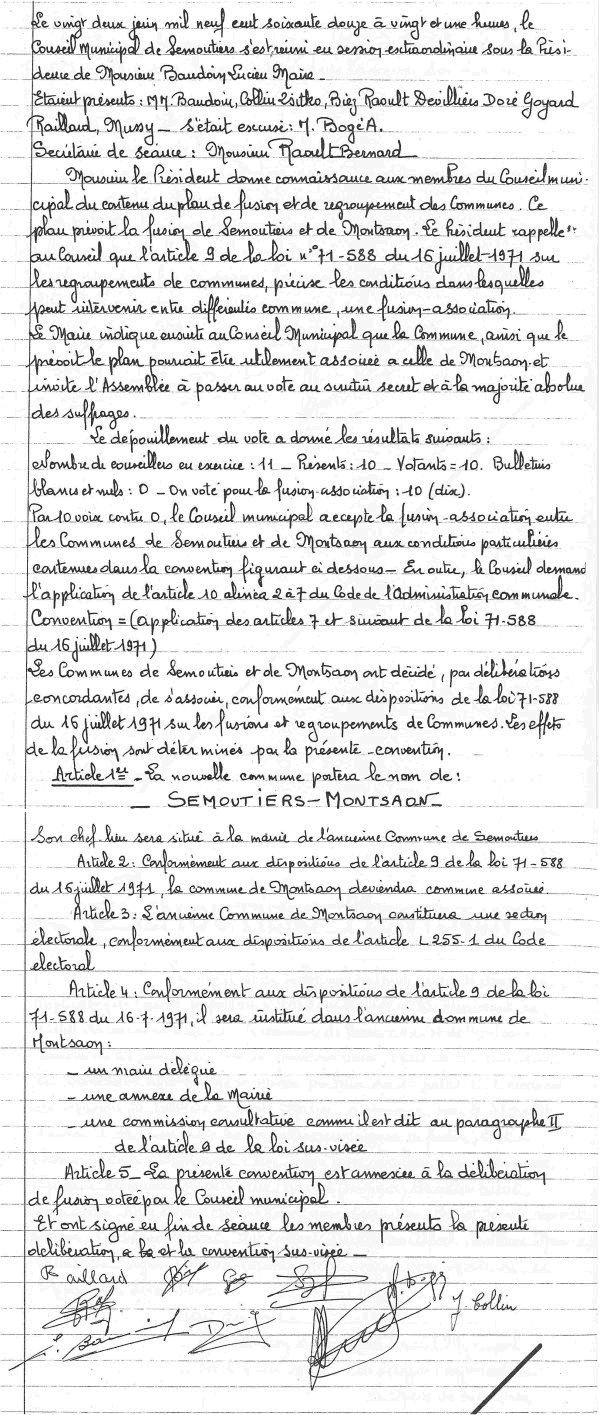 Le vingt deux juin mil neuf cent soixante douze à vingt et une heures, le
Conseil Municipal de Semoutiers s'est réuni en session extraordinaire sous la Prési-
dence de Monsieur Baudoin Lucien Maire_
Etaient présents : MM. Baudoin, Collin Zsitko, Biez Raoult Devilliers Doré Goyard
Raillard, Mussy _ s'était excusé : M. Bogé A.
Secrétaire de séance : Monsieur Raoult Bernard
Monsieur le Président donne connaissance aux membres du Conseil muni-
cipal du contenu du plan de fusion et de regroupement des Communes. Ce
plan prévoit la fusion de Semoutiers et de Montsaon. Le Président rappelle
au Conseil que l'article 9 de la loi n° 71-588 du 16 juillet 1971 sur
les regroupements de communes, précise les conditions dans lesquelles
peut intervenir entre différentes commune, une fusion-association.
Le Maire indique ensuite au Conseil Municipal que la Commune, ainsi que le
prévoit le plan pourrait être utilement associée a celle de Montsaon et
invite l'Assemblée à passer au vote au scrutin secret et à la majorité absolue
des suffrages.
Le dépouillement du vote a donné les résultats suivants :
Nombre de conseillers en exercice : 11 _ Présents : 10 _ Votants = 10. Bulletins
blancs et nuls : 0 _ On voté pour la fusion-association : 10 (dix).
Par 10 voix contre 0, le Conseil municipal accepte la fusion-association entre
les Communes de Semoutiers et de Montsaon aux conditions particulières
contenues dans la convention figurant ci dessous _ En outre, le Conseil demand
l'application de l'article 10 alinéa 2 à 7 du Code de l'Administration communale.
Convention = (application des articles 7 et suivant de la loi 71-588
du 16 juillet 1971)
Les Communes de Semoutiers et de Montsaon ont décidé, par délibérations
concordantes, de s'associer, conformément aux dispositions de la loi 71-588
du 16 juillet 1971 sur les fusions et regroupements de Communes. Les effets
de la fusion sont déterminés par la présente convention.
Article 1er _ La nouvelle commune portera le nom de :
_ SEMOUTIERS-MONTSAON_
Son chef lieu sera situé à la mairie de l'ancienne Commune de Semoutiers
Article 2 : Conformément aux dispositions de l'article 9 de la loi 71-588
du 16 juillet 1971, la commune de Montsaon deviendra commune associée.
Article 3 : L'ancienne Commune de Montsaon constituera une section
électorale, conformément aux dispositions de l'article L 255-1 du Code
electoral
Article 4 : Conformément aux dispositions de l'article 9 de la loi
71-588 du 16-7-1971, il sera institué dans l'ancienne commune de
Montsaon :
_ un maire délégué
_ une annexe de la Mairie
_ une commission consultative comme il est dit au paragraphe II
de l'article 9 de la loi sus-visée
Article 5 _ La présente convention est annexée à la délibération
de fusion votée par le Conseil municipal.
Et ont signé en fin de séance les membres présents la présente
délibération, et la convention sus-visée _
Raillard
J. Collin